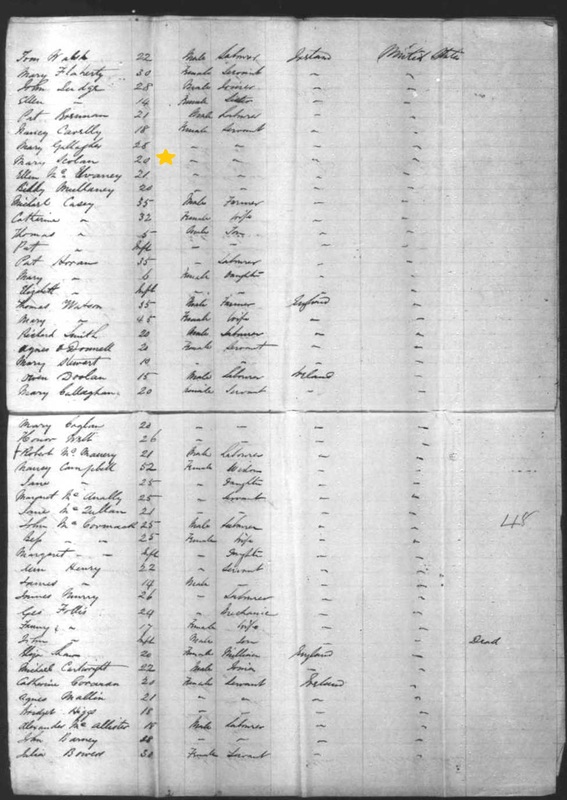 Tom Walsh 22 Male Labourer Ireland United States
Mary Flaherty 30 Female Servant " "
John Ludge 28 Male " "
Ellen " 14 Female " "
Pat Brennan 21 Male Labourer " "
Nancy 18 Female Servant " "
Mary Gallagher 28 " " " "
Mary Scolan 20 " " " "
Ellen 21 " " " "
Bibby Mullaney 20 " " " "
Michael Casey 35 Male Farmer " "
Catherine " 32 Female Wife " "
Thomas " 5 Male Son " "
Pat " Inft " " " "
Pat Horan 35 " Labourer " "
Mary " 6 Female Daughter " "
Elizabeth " Inft " " " "
Thomas Watson 35 Male Farmer England "
Mary " 45 Female Wife " "
Richard Smith 20 Male Labourer " "
Agnes O Donnell 20 Female Servant " "
Mary Stewart " " " "
Owen Doolan 15 Male Labourer Ireland "
Mary Callaghan 20 Female Servant " "
Mary 20 " " " "
Honor Watt 26 " " " "
Robert 21 Male Labourer " "
Nancy Campbell 52 Female Widow " "
Jane " 25 " Daughter " "
Margaret Mc Anally 25 " Servant " "
Jane Mc Quillan 21 " " " "
John Mc Cormack 25 Male Labourer " "
Bess " " 25 Female Wife " "
Margaret " " Inft " Daughter " "
Henry 22 " Servant " "
James " 14 Male " " "
James Murry 26 " Labourer " "
Geo Follis 24 " Mechanic " "
Fanny " 17 Female Wife " "
John " Inft Male Son " " Dead
Eliza 20 Female Milliner England "
Michael Cartwright 22 Male " "
Catherine Corcoran 20 Female Servant Ireland "
Agnes Mallin 21 " " " "
Bridget Higgs 18 " " " "
Alexander Mc Allister 18 Male Labourer " "
John Barney 28 " " " "
Julia Bowers 30 Female Servant " "
48